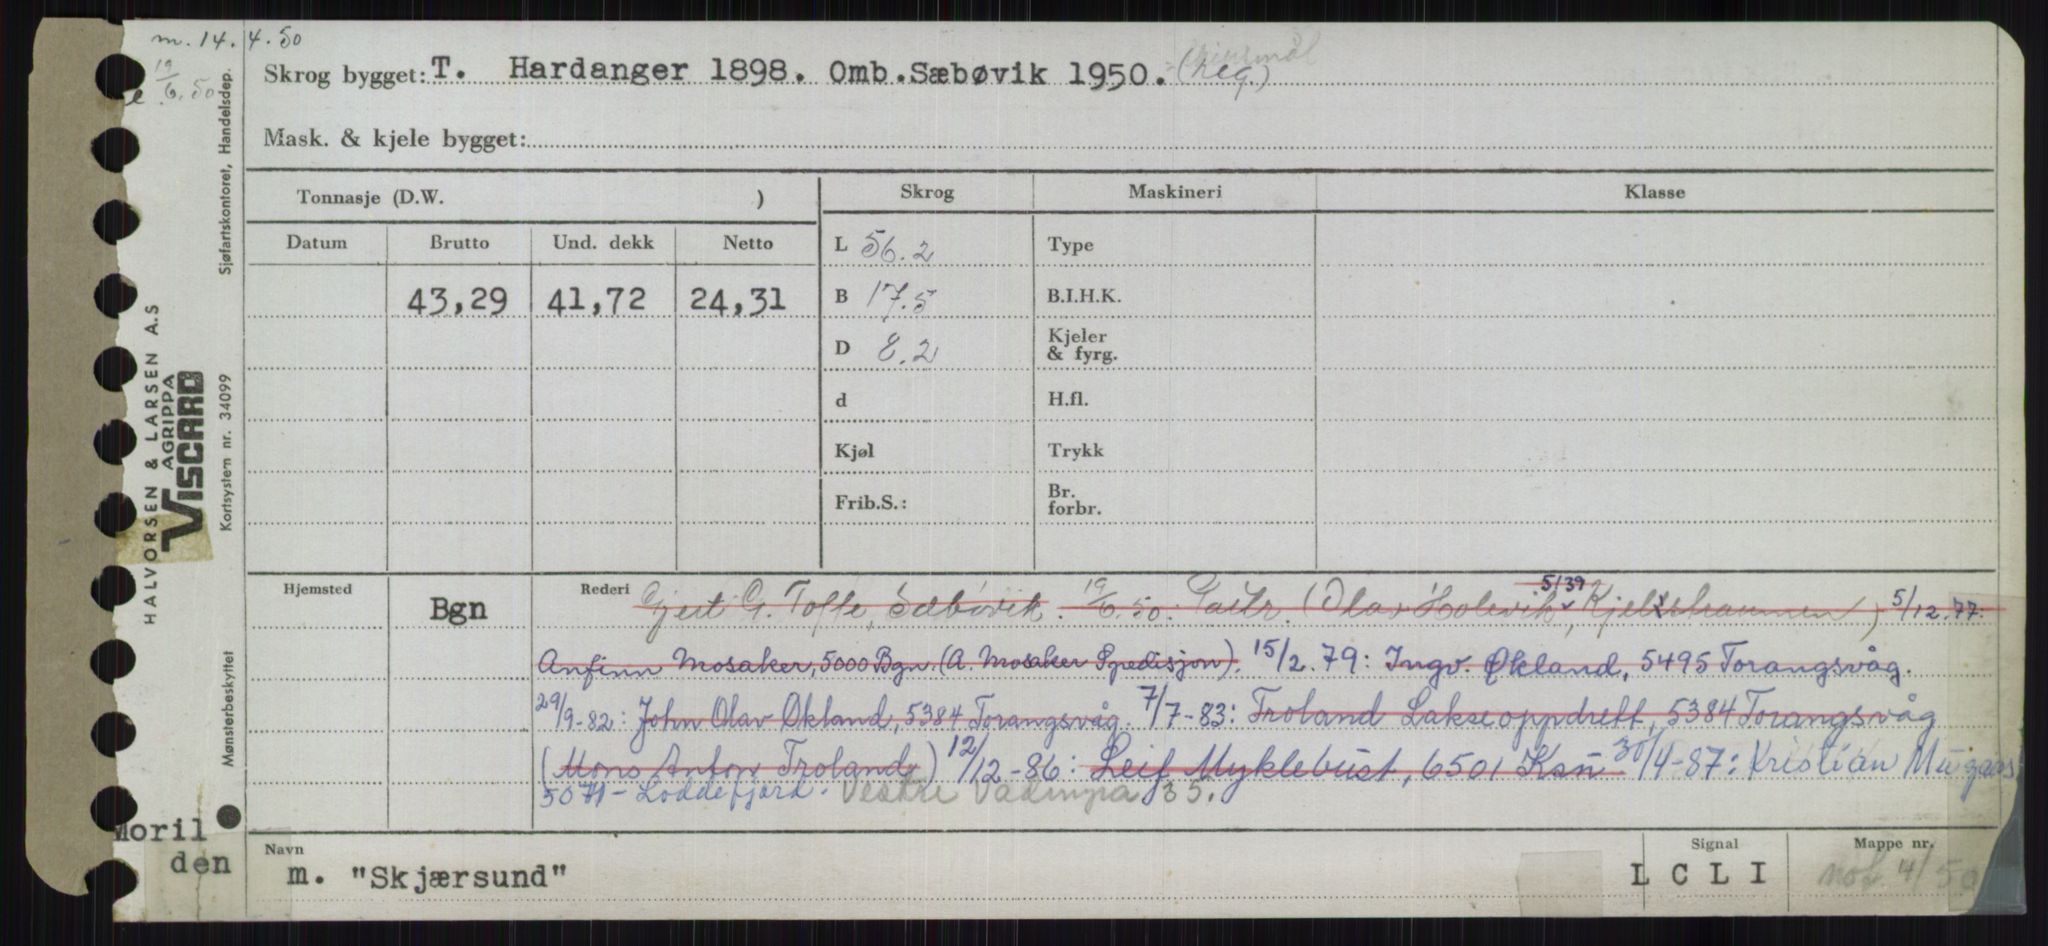 m. 14. 4. 50
e 19/6. 50
Skrog bygget: T. Hardanger 1898. Omb. Sæbøvik 1950. (Reg.)
Mask. & kjele bygget:
Tonnasje (D.W. )
Skrog Maskineri Klasse
Datum Brutto Und. dekk Netto
L 56.2 Type
43,29 41,72 24,31
B 17.5 B.I.H.K.
D 8.2 Kjeler & fyrg.
d H.fl.
Kjøl Trykk
Frib.S.: Br. forbr.
Hjemsted Bgn
Rederi Gjert G. Tofte, Sæbøvik. 19/6.50. Partr. (Olav Holevik, 5139 Kjelstraumen) 5/12.77:
Anfinn Mosaker, 5000 Bgn. (A. Mosaker Spedisjon). 15/2.79: Ingv. Økland, 5495 Torangsvåg.
29/9-82: John Olav Økland, 5384 Torangsvåg. 7/7-83: Troland Lakseoppdrett, 5384 Torangsvåg
(Mons Anton Troland) 12/12-86: Leif Myklebust, 6501 Ksu 30/4-87: Kristian Mugaas
5071 - Loddefjord. Vestre Vadmyra 35.
Moril
den
Navn m. "Skjærsund"
Signal L C L I
Mappe nr. not 4/50
HALVORSEN & LARSEN A.S
AGRIPPA
VISCARD
Sjøfartskontoret, Handelsdep.
Kortsystem nr. 34099
Mønsterbeskyttet